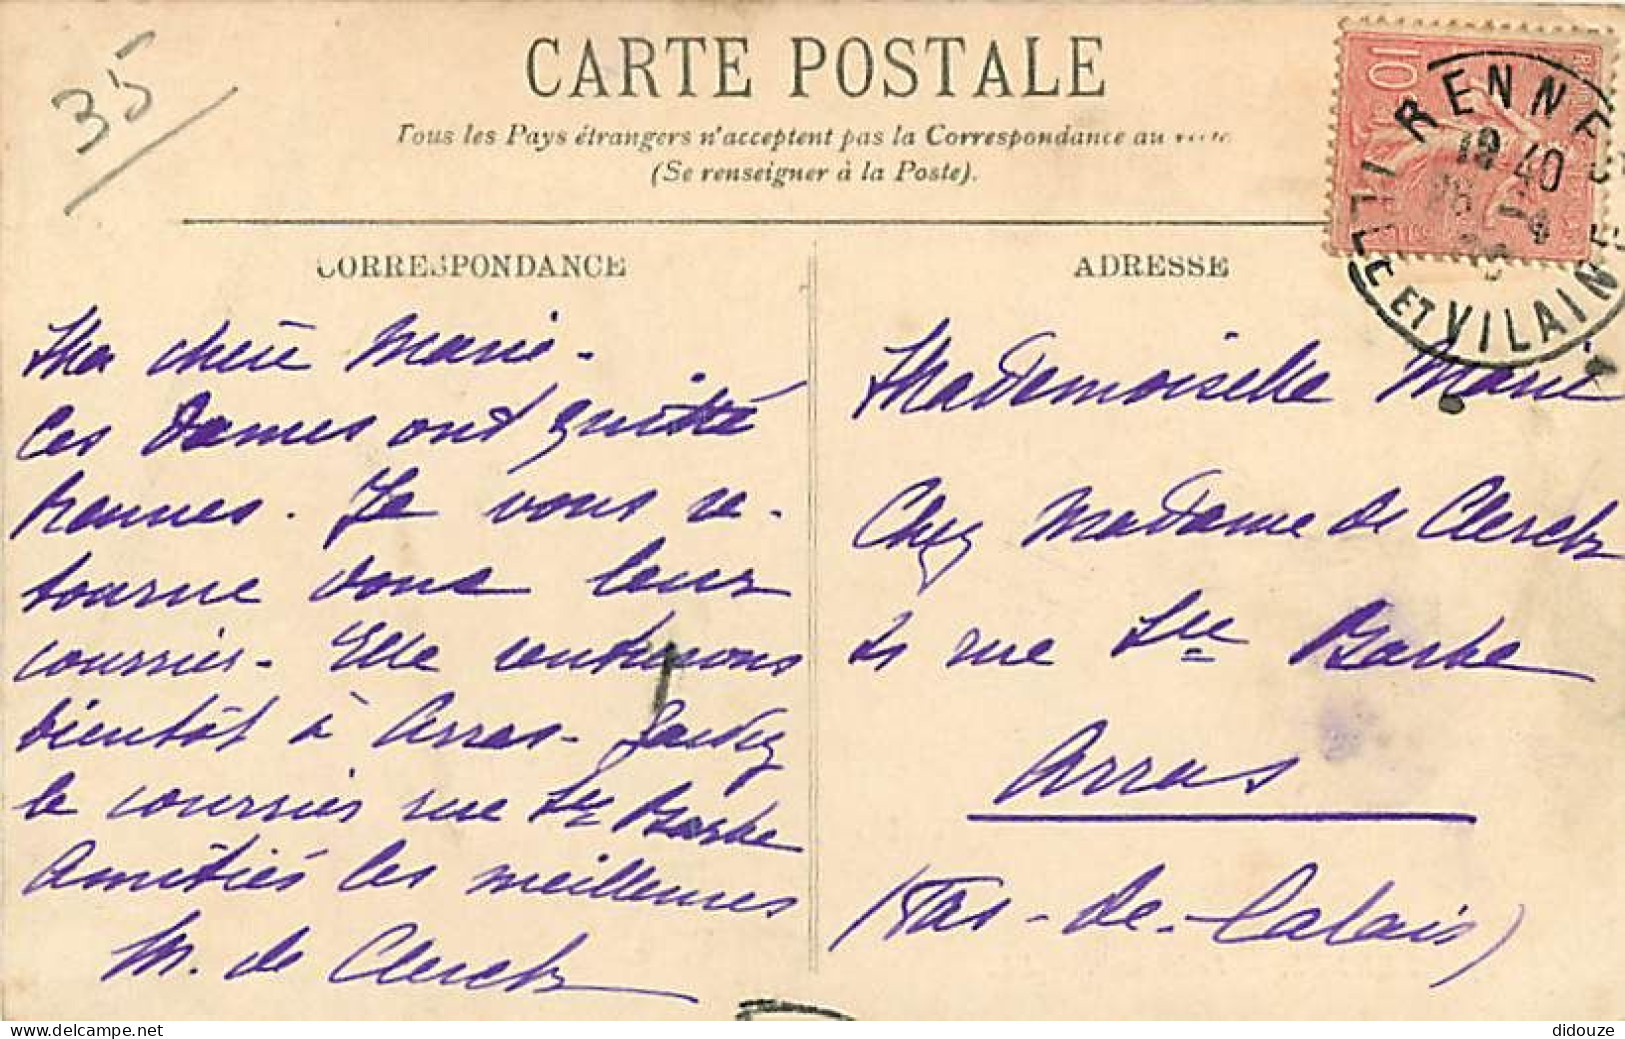 35
CARTE POSTALE
Tous les Pays étrangers n'acceptent pas la Correspondance au
(Se renseigner à la Poste).
10
RENNES
19 40
ILLE ET VILAINE
CORRESPONDANCE
Ma chère Marie -
Ces Dames ont quitté
Rennes. Je vous re-
tourne donc leur
courrier - Elle
bientôt à Arras - Gardez
le courrier rue Ste Barbe
Amitiés les meilleures
M. de Clerck
ADRESSE
Mademoiselle Marie
Chez Madame de Clerck
rue Ste Barbe
Arras
(Pas-de-Calais)
delcampe.net
didouze